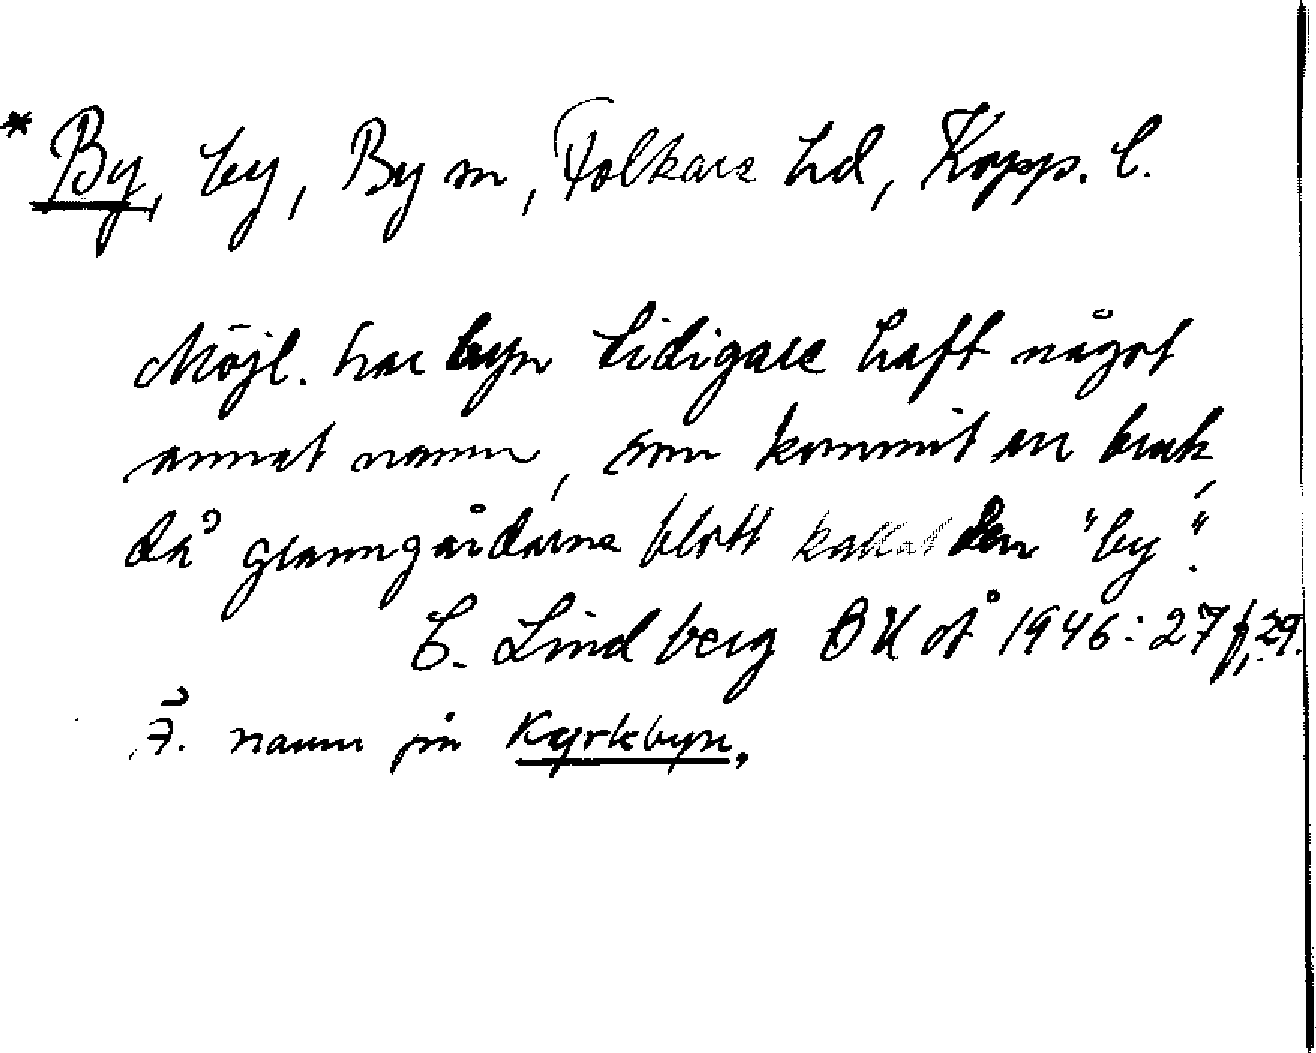 * By, by, By sn, Folkare hd, Kopp. l.
Möjl. har byn tidigare haft något
annat namn, som kommit ur bruk,
då granngårdarna blott kallat den "by".
C. Lindberg BUÅ 1946: 27 f, 29.
Ä. namn på Kyrkbyn.